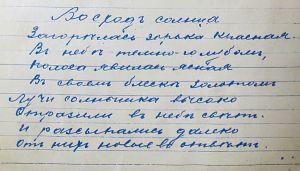 Восход солнца
Загорелась зорька красная
В небе темно-голубом,
Полоса явилась ясная
В своём блеске золотом
Лучи солнышка высоко
Отразили в небе свет.
И рассыпались далеко
От них новые в ответ.